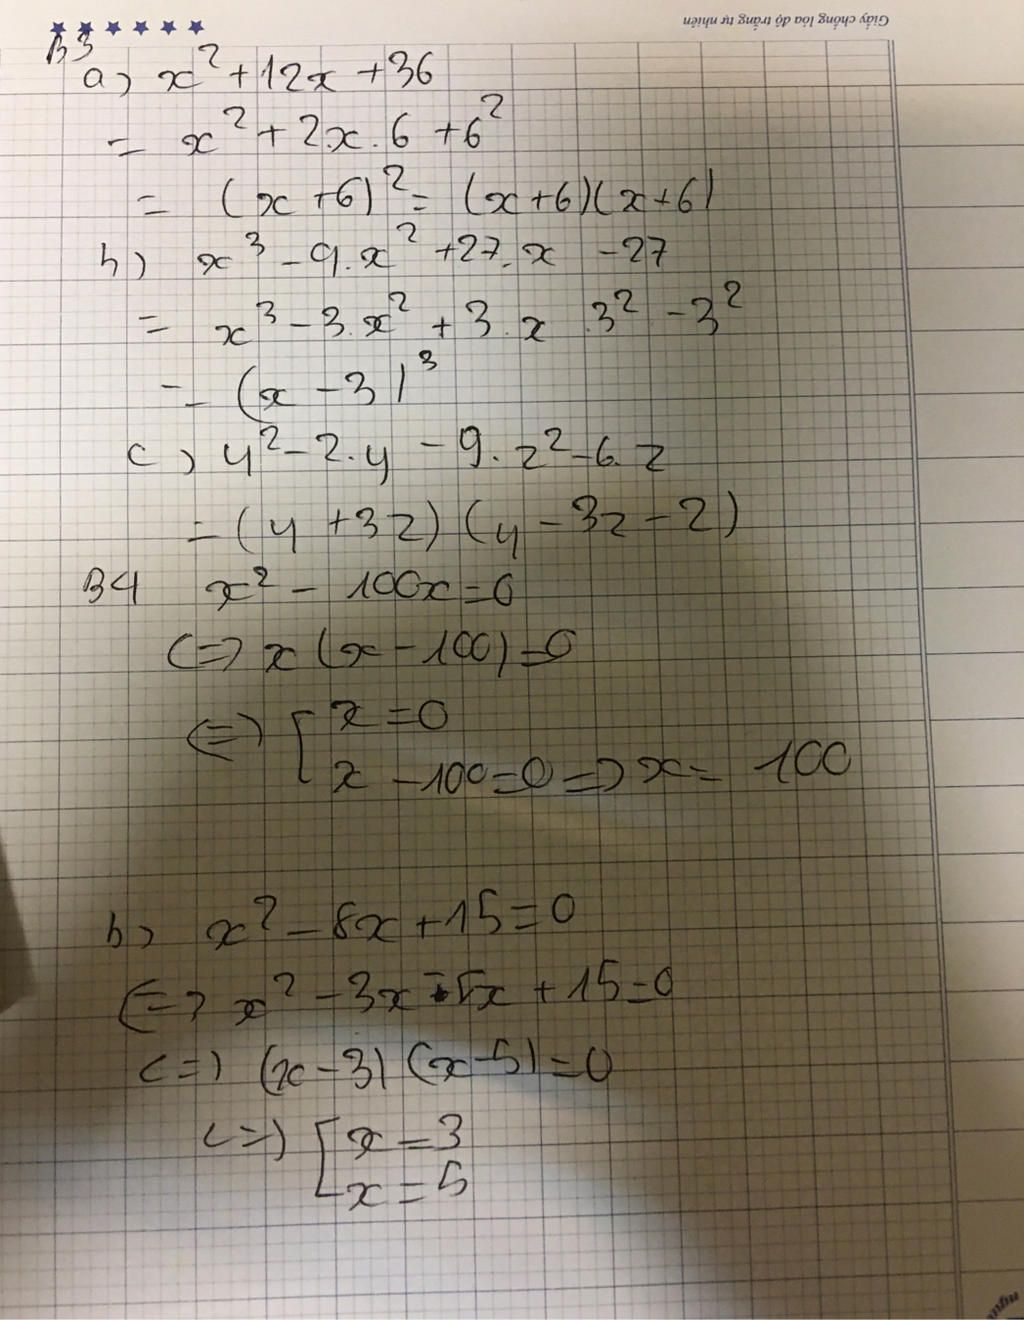 Giấy chống lóa độ trắng tự nhiên
B3
a) x² + 12x + 36
= x² + 2x . 6 + 6²
= (x + 6)² = (x + 6)(x + 6)
b) x³ - 9.x² + 27.x - 27
= x³ - 3.x² + 3.x 3² - 3²
= (x - 3)³
c) y² - 2.y - 9.z² - 6.z
= (y + 3z) (y - 3z - 2)
B4 x² - 100x = 0
<=> x (x - 100) = 0
<=> [ x = 0
x - 100 = 0 => x = 100
b) x² - 8x + 15 = 0
<=> x² - 3x - 5x + 15 = 0
<=> (x - 3) (x - 5) = 0
<=> [ x = 3
x = 5